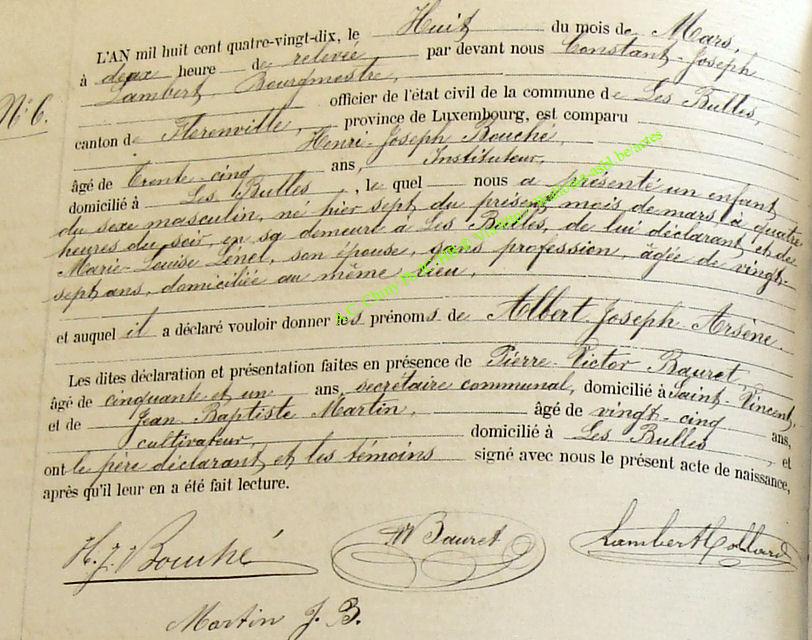 L'AN mil huit cent quatre-vingt-dix, le Huit du mois de Mars,
à deux heure de relevée par devant nous Constant-Joseph
Lambert, Bourgmestre,
N° 6.
officier de l'état civil de la commune de Les Bulles,
canton de Florenville, province de Luxembourg, est comparu
Henri-Joseph Bouché,
âgé de trente-cinq ans, Instituteur,
domicilié à Les Bulles, le quel nous a présenté un enfant
du sexe masculin, né hier sept du présent mois de mars, à quatre
heures du soir, en sa demeure à Les Bulles, de lui déclarant et de
Marie-Louise Lenel, son épouse, sans profession, âgée de vingt-
sept ans, domiciliée au même lieu,
et auquel il a déclaré vouloir donner les prénoms de Albert-Joseph-Arsène.
Les dites déclaration et présentation faites en présence de Pierre-Victor Bauret,
âgé de cinquante et un ans, secrétaire communal, domicilié à Saint-Vincent,
et de Jean-Baptiste Martin, âgé de vingt-cinq ans,
cultivateur, domicilié à Les Bulles, et
ont le père déclarant et les témoins signé avec nous le présent acte de naissance,
après qu'il leur en a été fait lecture.
H. J. Bouché
Bauret
Lambert
Martin J. B.